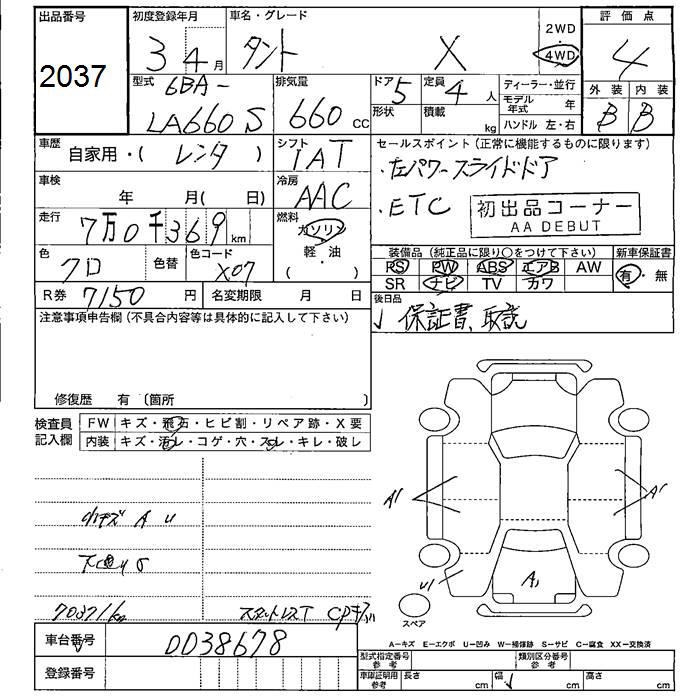 出品番号
2037
初度登録年月
3 4月
車名・グレード
タント X
2WD
4WD
評価点
4
外装 内装
B B
型式
6BA-
LA660S
排気量
660 cc
ドア 5
形状
定員 4人
積載 kg
ディーラー・並行
モデル年式 年
ハンドル 左・右
車歴
自家用・( レンタ )
シフト
IAT
セールスポイント (正常に機能するものに限ります)
・左パワースライドドア
・ETC
初出品コーナー
AA DEBUT
車検
年 月( 日)
冷房
AAC
走行
7万0千369km
燃料
ガソリン
軽・油
( ・ )
色
クロ
色替
色コード
X07
R券 7150円
名変期限 月 日
装備品 (純正品に限り○をつけて下さい)
PS PW ABS エアB AW
SR ナビ TV カワ
新車保証書
有・無
後日品
保証書、取説
注意事項申告欄 (不具合内容等は具体的に記入して下さい)
修復歴 有 〔箇所
検査員記入欄
FW キズ・飛石・ヒビ割・リペア跡・X要
内装 キズ・汚レ・コゲ・穴・スレ・キレ・破レ
小キズ A U
70371km
A1
A1
U1
A1
スペア
A―キズ E―エクボ U―凹み W―補修跡 S―サビ C―腐食 XX―交換済
車台番号
0038678
登録番号
型式指定番号 参考
類別区分番号 参考
車庫証明用 参考
長さ cm
幅 cm
高さ cm